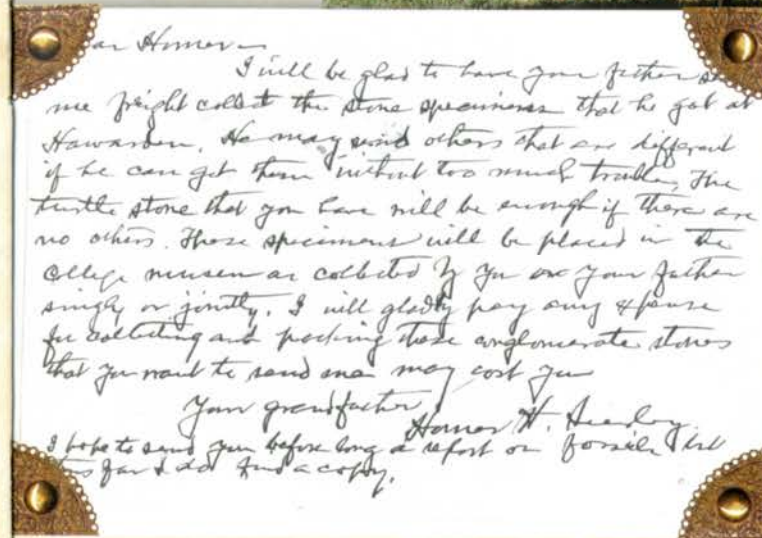 ar Homer—
I will be glad to have your father
me freight collect the stone specimens that he got at
Hawarden. He may send others that are different
if he can get them without too much trouble. The
turtle stone that you have will be enough if there are
no others. These specimens will be placed in the
college museum as collected by you or your father
singly or jointly. I will gladly pay any expense
for collecting and packing these conglomerate stones
that you want to send me may cost you
Your grandfather,
Homer H. Seerley.
I hope to send you before long a report on fossils but
far I do find a copy.